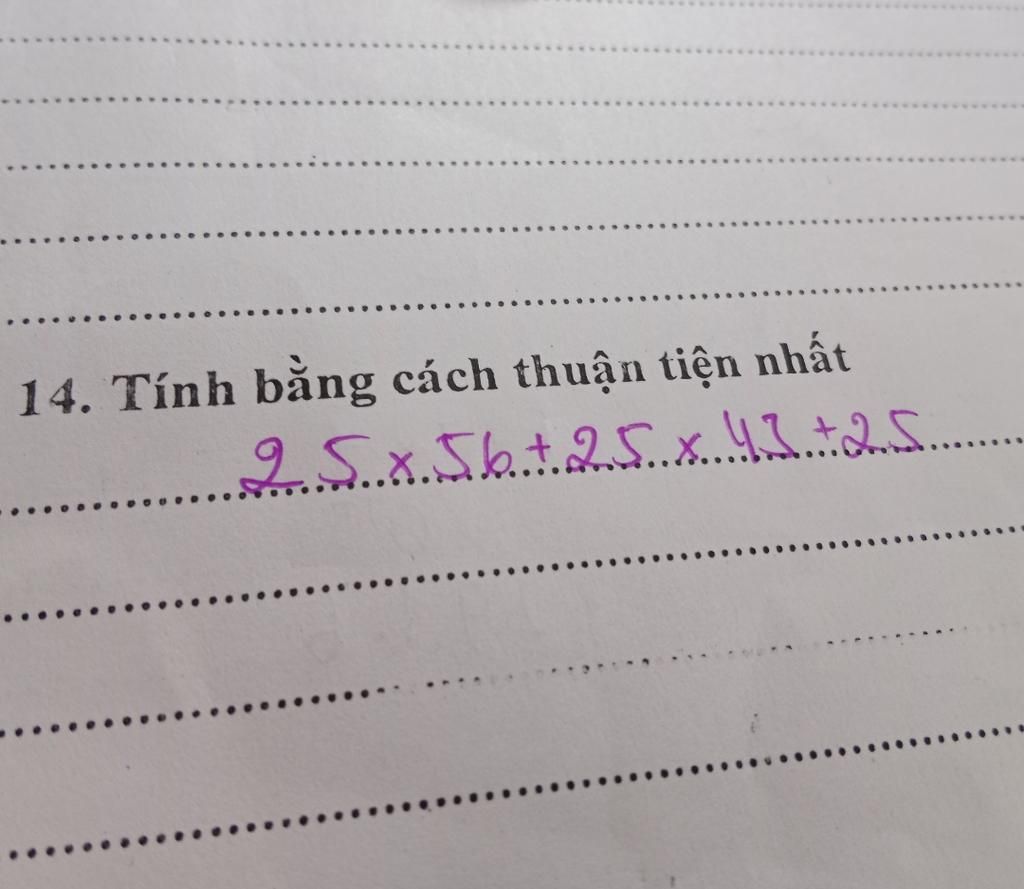 14. Tính bằng cách thuận tiện nhất
25 x 56 + 25 x 43 + 25